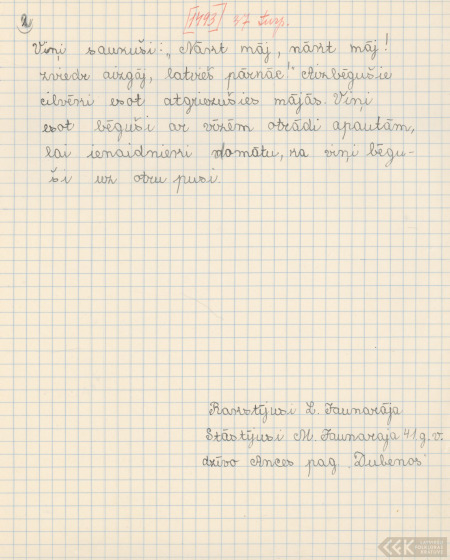 2
[1993] 37 lusp.
Viņi saukuši: „Nākt māj, nākt māj!
zviedr aizgāj, latvieš pārnāc!" Aizbēgušie
cilvēki esot atgriezušies mājās. Viņi
esot bēguši ar vīzēm otrādi apautām,
lai ienaidnieki domātu, ka viņi bēgu-
ši uz otru pusi.
Rakstījusi L. Jaunarāja
Stāstījusi M. Jaunarāja 41 g. v.
dzīvo Ances pag. „Dubenos"
LFK